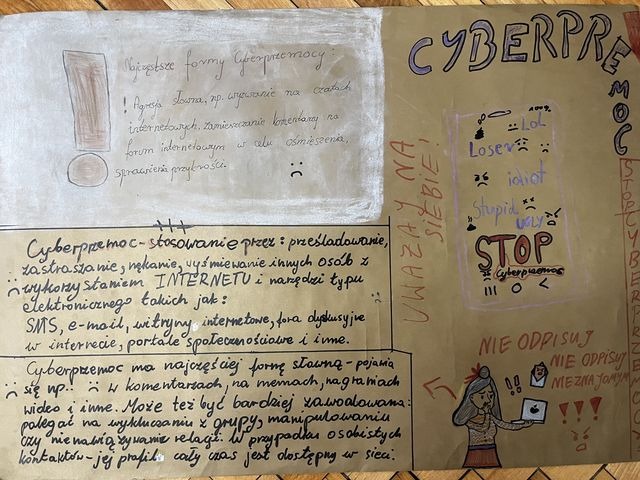 CYBERPRZEMOC
Najczęstsze formy Cyberprzemocy:
! Agresja słowna, np. wyzwanie na czatach
internetowych, zamieszczanie komentarzy na
forum internetowym w celu ośmieszenia,
sprawienia przykrości.
Cyberprzemoc - stosowanie przez: prześladowanie,
zastraszanie, nękanie, wyśmiewanie innych osób z
wykorzystaniem INTERNETU i narzędzi typu
elektronicznego takich jak:
SMS, e-mail, witryny internetowe, fora dyskusyjne
w internecie, portale społecznościowe i inne.
Cyberprzemoc ma najczęściej formę słowną - pojawia
się np. w komentarzach, na memach, nagraniach
wideo i inne. Może też być bardziej zawoalowana:
polegać na wykluczaniu z grupy, manipulowaniu
czy nienawiązywanie relacji. W przypadku osobistych
kontaktów - jej profil cały czas jest dostępny w sieci.
UWAŻAJ NA
SIEBIE!
100%
LOL
Loser
idiot
Stupid
ugly
STOP
Cyberprzemoc
NIE ODPISUJ
NIE ODPISUJ
NIEZNAJOMYM
!!
!!!